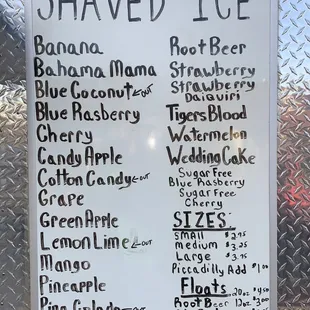 SHAVED ICE
Banana
Bahama Mama
Blue Coconut ←OUT
Blue Rasberry
Cherry
Candy Apple
Cotton Candy ←OUT
Grape
Green Apple
Lemon Lime ←OUT
Mango
Pineapple
Pina Colada ←OUT
Root Beer
Strawberry
Strawberry
Daiquiri
Tigers Blood
Watermelon
Wedding Cake
Sugar Free
Blue Rasberry
Sugar Free
Cherry
SIZES
SMALL $2.75
medium $3.25
Large $3.75
Piccadilly Add $1.00
Floats
Root Beer 20oz $4.50
12oz $3.00